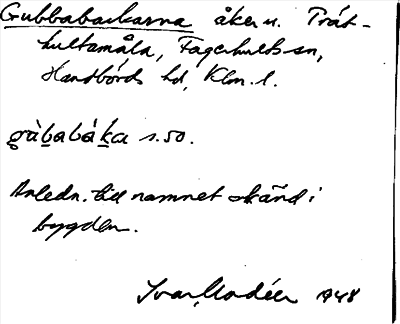 Gubbabackarna åker u. Trät-
hultamåla, Fagerhults sn,
Handbörds hd, Klm. l.
gùbabàka s. 50.
Anledn. till namnet okänd i
bygden.
Ivar Modéer 1948